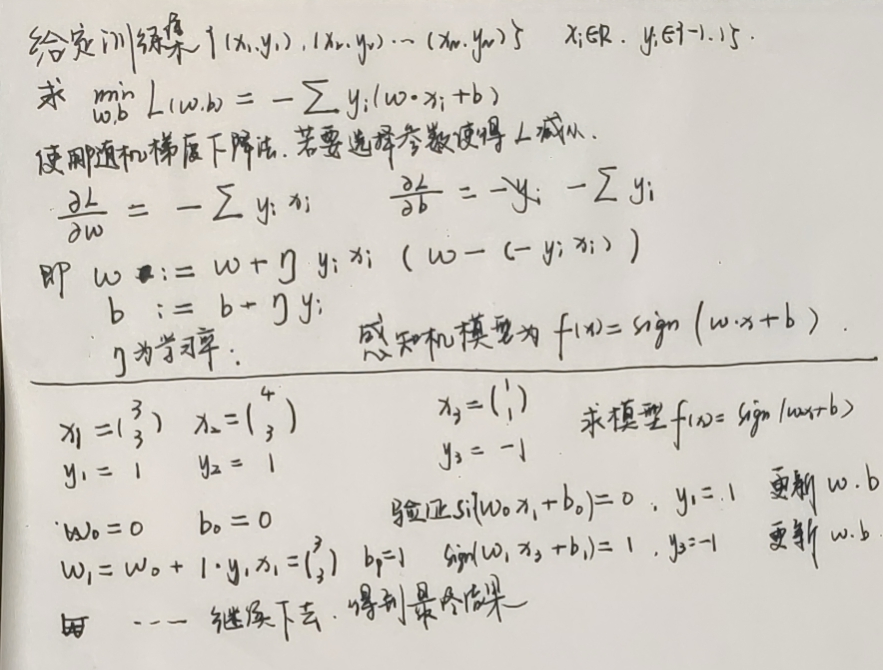 给定训练集 {(x₁,y₁),(x₂,y₂)…(xₙ,yₙ)} xᵢ∈R. yᵢ∈{-1,1}.
求 min w,b L(w,b) = -∑ yᵢ(w·xᵢ+b)
使用随机梯度下降法.若要选择参数使得L减小.
∂L/∂w = -∑ yᵢ xᵢ ∂L/∂b = -yᵢ -∑ yᵢ
即 w := w + η yᵢ xᵢ (w-(-yᵢ xᵢ))
b := b + η yᵢ
η为学习率; 感知机模型为 f(x)=sign(w·x+b).
x₁=(3 3) x₂=(4 3) x₃=(1 1) 求模型f(x)=sign(wx+b)
y₁=1 y₂=1 y₃=-1
w₀=0 b₀=0 验证si(w₀x₁+b₀)=0, y₁=1 更新w.b
w₁=w₀+1·y₁x₁=(3 3) b₁=1 sign(w₁x₃+b₁)=1, y₃=-1 更新w.b.
…… 继续下去.得到最终结果